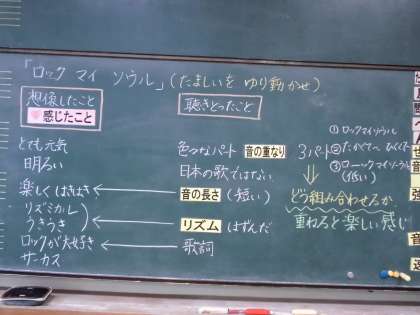 「ロック マイ ソウル」(たましいを ゆり動かせ)
想像したこと
感じたこと
聴きとったこと
とても元気
明るい
楽しく はきはき
リズミカル
うきうき
ロックが大好き
サーカス
色々なパート 音の重なり 3パート
日本の歌ではない
音の長さ (短い)
リズム はずんだ
歌詞
① ロックマイソウル
②
③ ロックマイソウル
(低い)
どう組み合わせるか
重ねると楽しい感じ
強
音
速